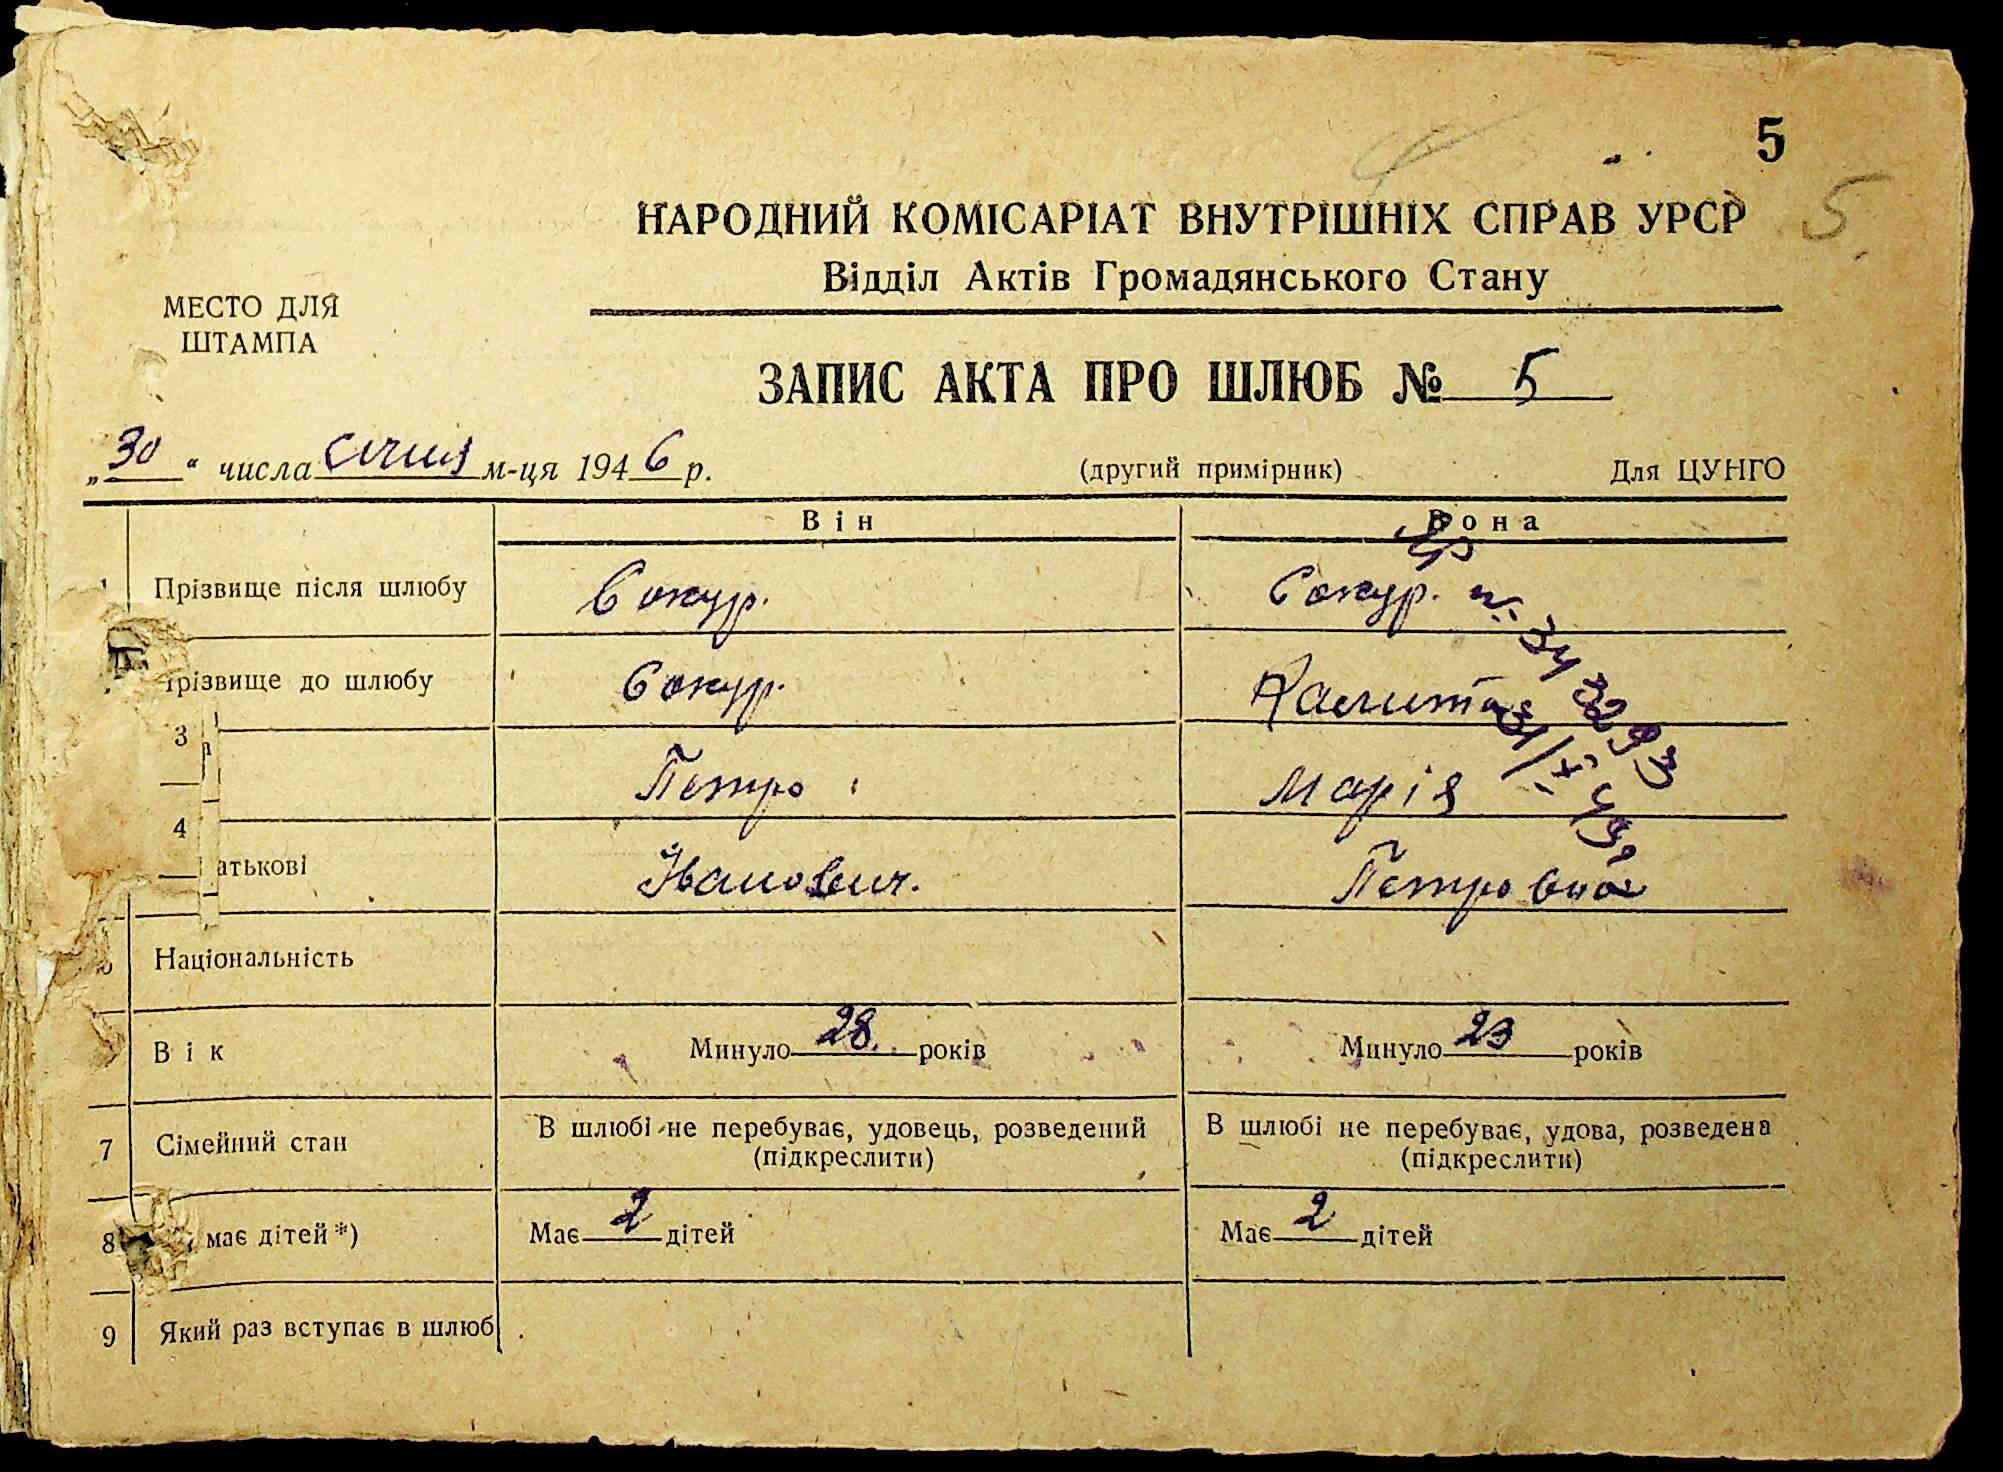 5
НАРОДНИЙ КОМІСАРІАТ ВНУТРІШНІХ СПРАВ УРСР
5
Відділ Актів Громадянського Стану
МЕСТО ДЛЯ
ШТАМПА
ЗАПИС АКТА ПРО ШЛЮБ № 5
„30“ числа січня м-ця 1946 р.
(другий примірник)
Для ЦУНГО
Він
Вона
Прізвище після шлюбу
Сокур.
Сокур.
різвище до шлюбу
Сокур.
Калита
3
Петро
Марія
4
атькові
Іванович.
Петровна
Національність
Вік
Минуло 28 років
Минуло 23 років
7 Сімейний стан
В шлюбі не перебуває, удовець, розведений
(підкреслити)
В шлюбі не перебуває, удова, розведена
(підкреслити)
8 має дітей*)
Має 2 дітей
Має 2 дітей
9 Який раз вступає в шлюб